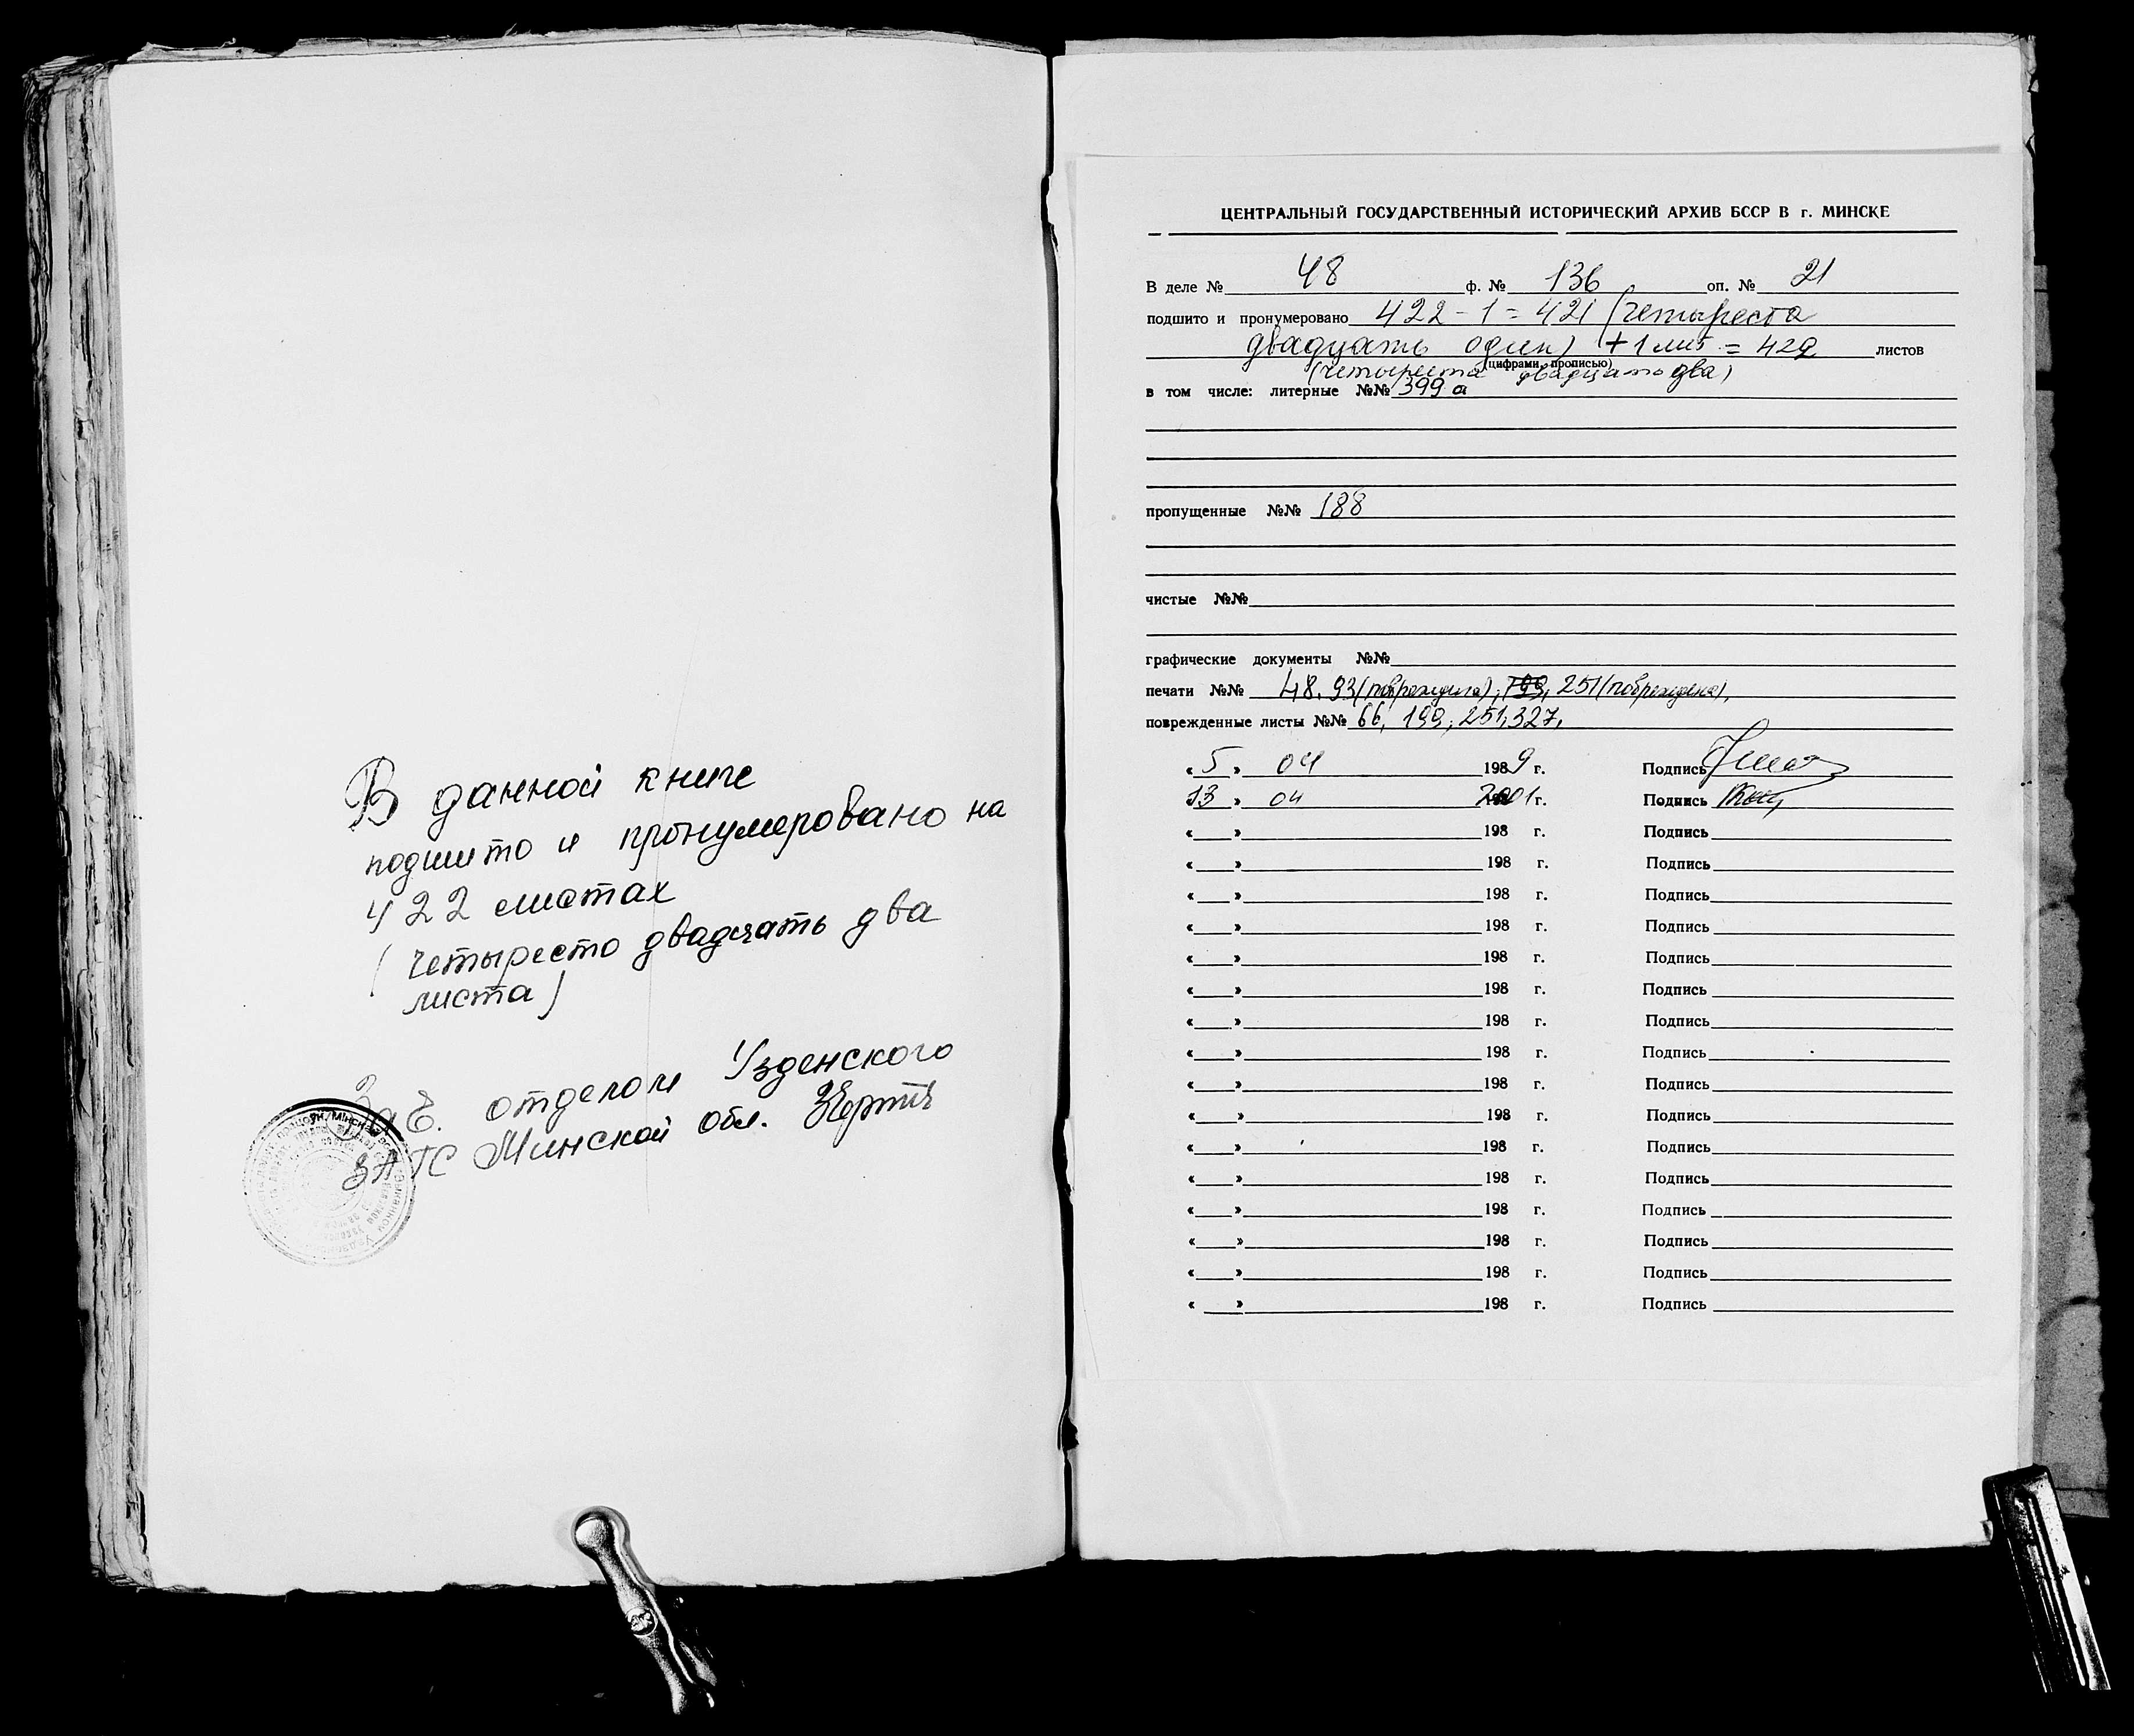 В данной книге
подшито и пронумеровано на
422 листах
(четыресто двадцать два
листа)
Зав. отделом Узденского
ЗАГС Минской обл.
ЦЕНТРАЛЬНЫЙ ГОСУДАРСТВЕННЫЙ ИСТОРИЧЕСКИЙ АРХИВ БССР В г. МИНСКЕ
В деле № 48 ф. № 136 оп. № 21
подшито и пронумеровано 422 - 1 = 421 (четыреста
двадцать один) + 1 лит = 422 листов
(цифрами, прописью)
(четыреста двадцать два)
в том числе: литерные №№ 399 а
пропущенные №№ 188
чистые №№
графические документы №№
печати №№ 48, 93 (повреждена), 199, 251 (повреждена),
поврежденные листы №№ 66, 199, 251, 327,
« 5 » 04 1989 г. Подпись
13 » 04 2001 г. Подпись
« » 198 г. Подпись
« » 198 г. Подпись
« » 198 г. Подпись
« » 198 г. Подпись
« » 198 г. Подпись
« » 198 г. Подпись
« » 198 г. Подпись
« » 198 г. Подпись
« » 198 г. Подпись
« » 198 г. Подпись
« » 198 г. Подпись
« » 198 г. Подпись
« » 198 г. Подпись
« » 198 г. Подпись
« » 198 г. Подпись
« » 198 г. Подпись